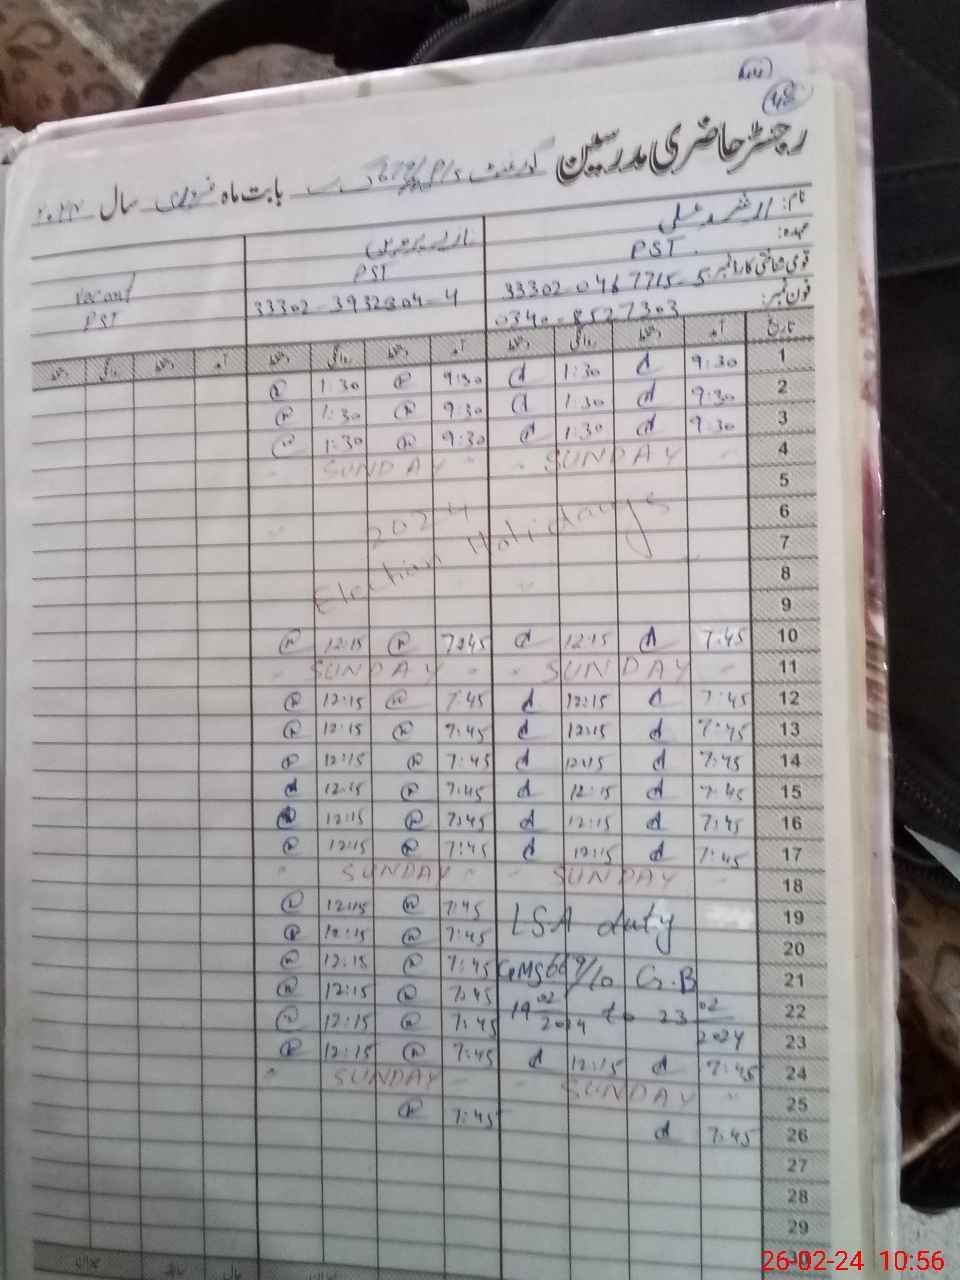 48
رجسٹر حاضری مدرسین گورنمنٹ بابت ماہ فروری سال ۲۰۲۴
نام: ارشد علی
عہدہ: PST. PST Vacant
قومی شناختی کارڈ نمبر: 33302-0467715-5 33302-3932804-4 PST
فون نمبر: 0340-8527303
تاریخ آمد دستخط روانگی دستخط آمد دستخط روانگی دستخط آمد دستخط روانگی دستخط
1 9:30 1:30 9:30 1:30
2 9:30 1:30 9:30 1:30
3 9:30 1:30 9:30 1:30
4 SUNDAY SUNDAY
5
6 2024
7 Election Holidays
8
9
10 7:45 12:15 7:45 12:15
11 SUNDAY SUNDAY
12 7:45 12:15 7:45 12:15
13 7:45 12:15 7:45 12:15
14 7:45 12:15 7:45 12:15
15 7:45 12:15 7:45 12:15
16 7:45 12:15 7:45 12:15
17 7:45 12:15 7:45 12:15
18 SUNDAY SUNDAY
19 LSA duty 7:45 12:15
20 7:45 12:15
21 G.B 7:45 12:15
22 19 02/2024 to 23 02/2024 7:45 12:15
23 7:45 12:15
24 7:45 12:15 7:45 12:15
25 SUNDAY SUNDAY
26 7:45 7:45
27
28
29
30
26-02-24 10:56